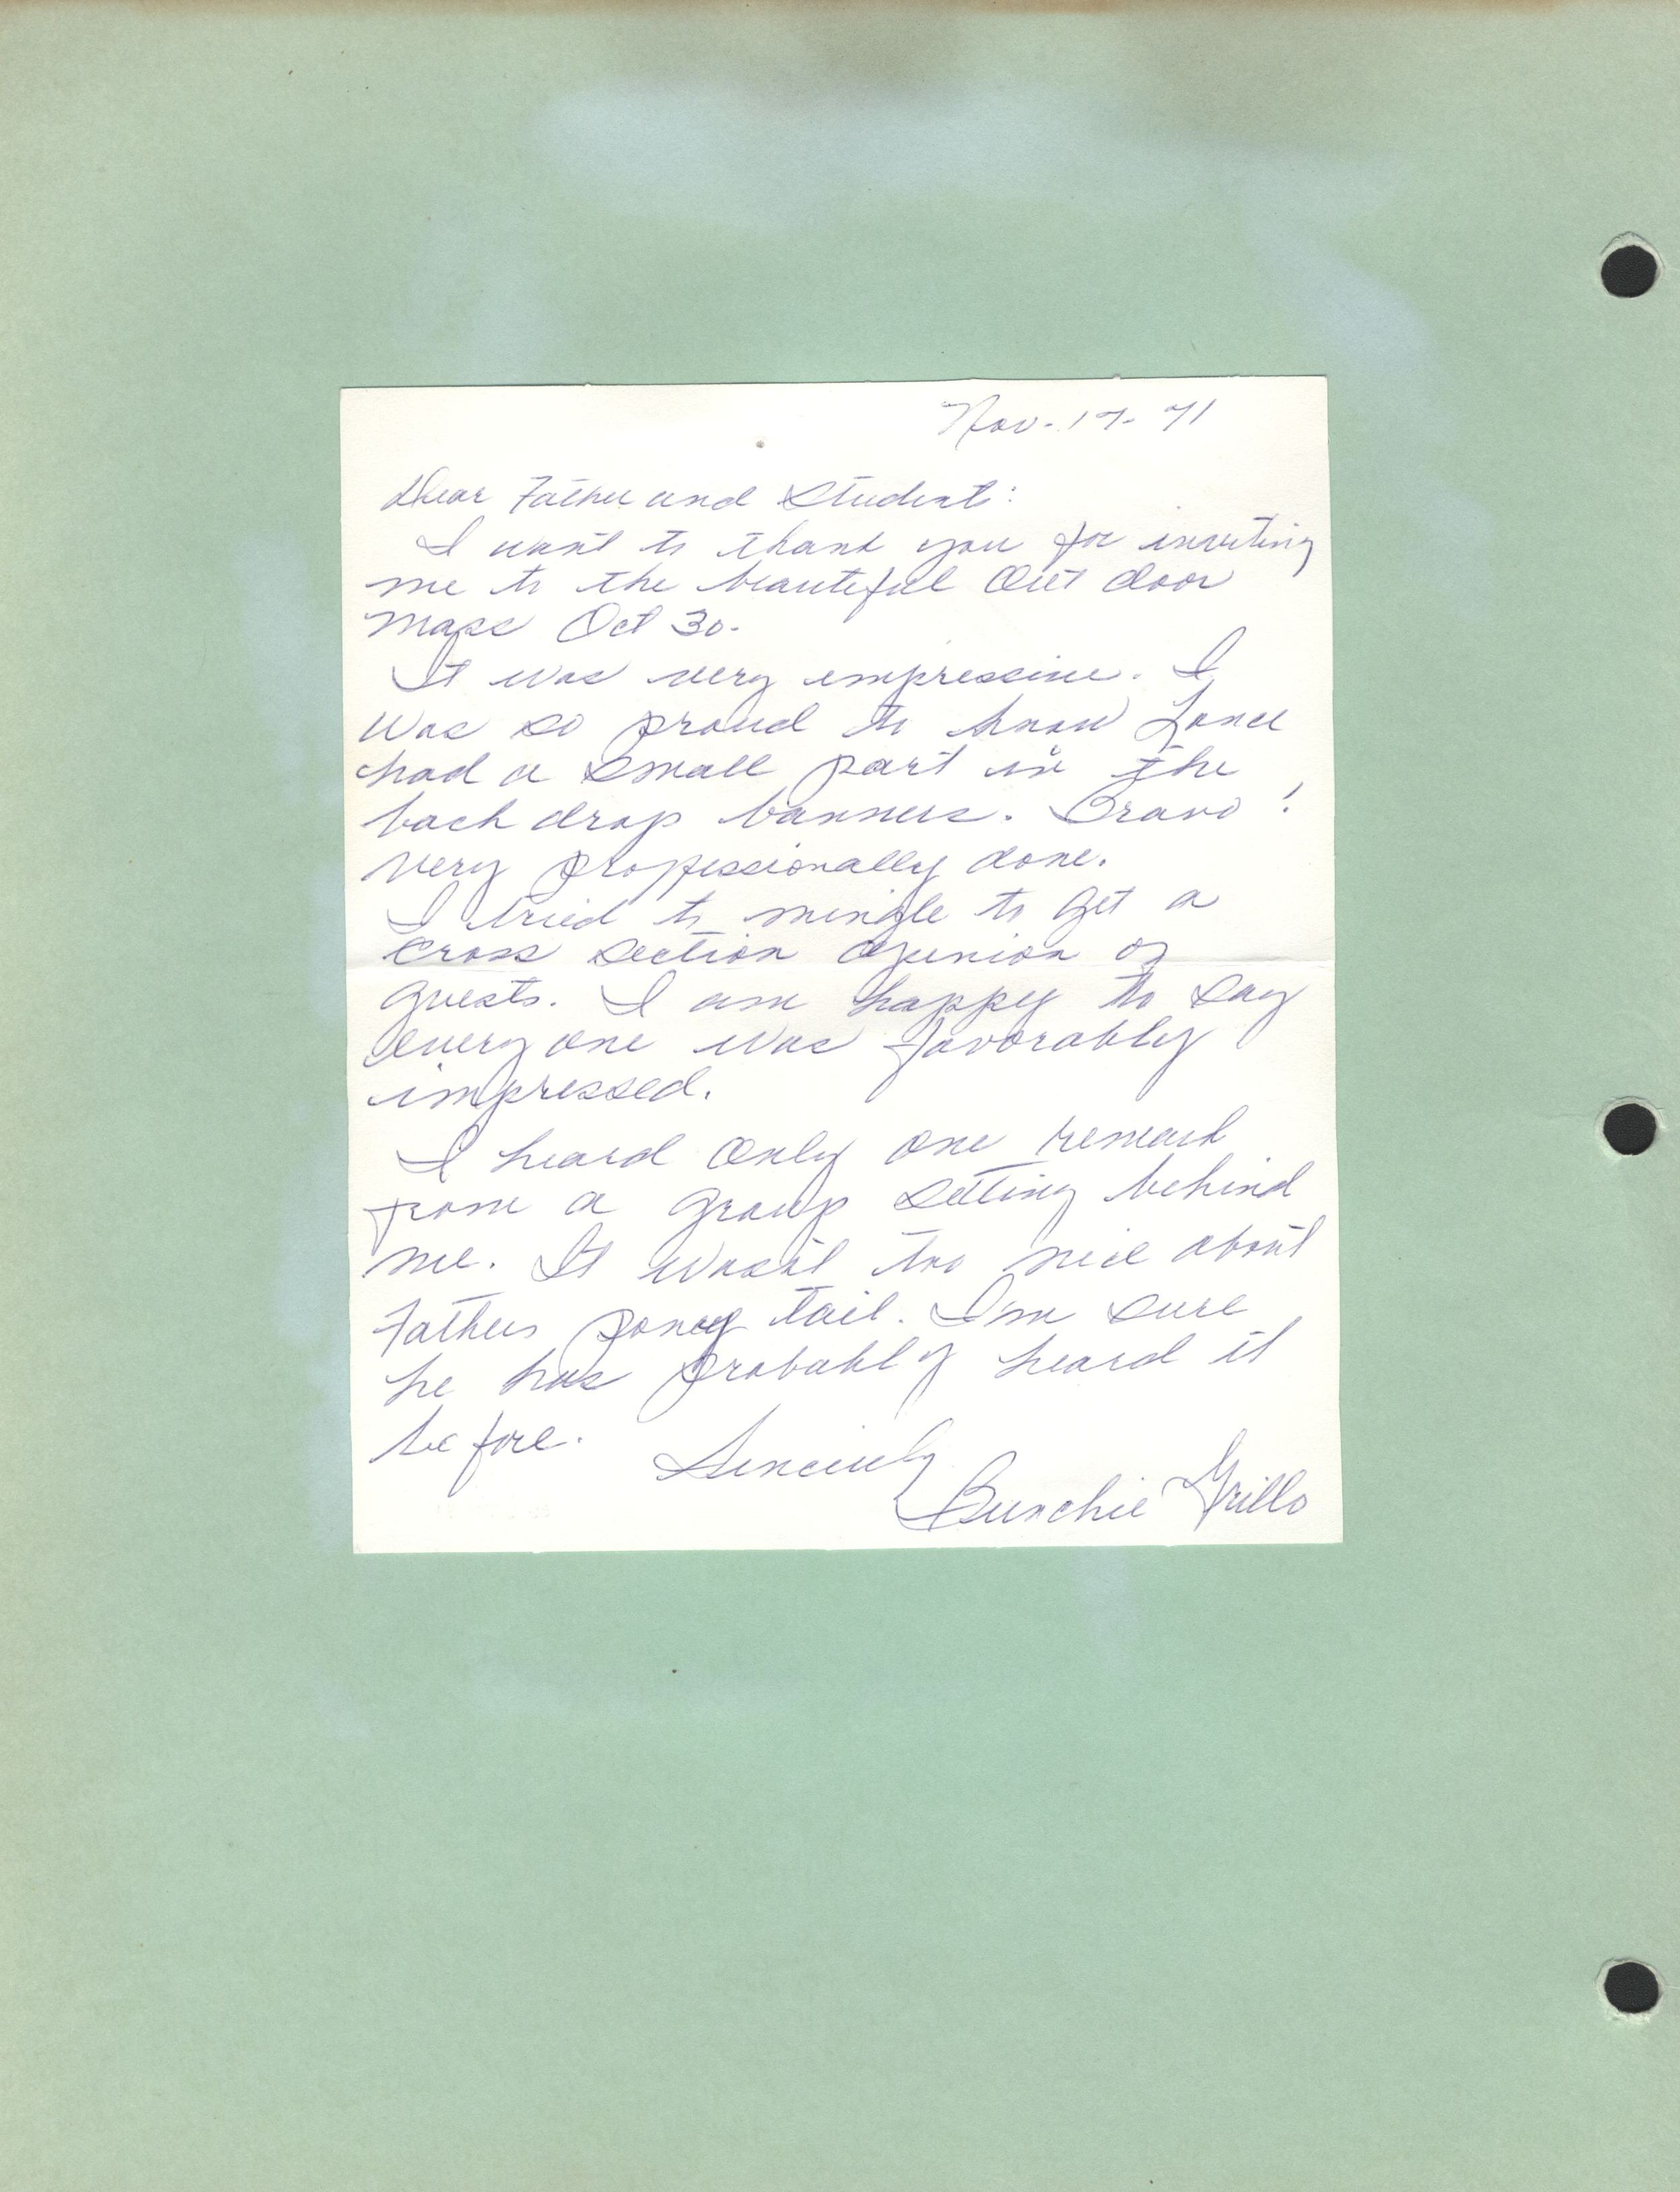 Nov. 17. 71
Dear Father and Student:
I want to thank you for inviting
me to the beautiful Out door
Mass Oct 30.
It was very impressive. I
was so proud to know Lance
had a small part in the
back drop banners. Bravo!
Very professionally done.
I tried to mingle to get a
cross section opinion of
guests. I am happy to say
every one was favorably
impressed.
I heard only one remark
from a group setting behind
me. It wasn't too nice about
Fathers poney tail. I'm sure
he has probably heard it
before.
Sincerely
Bunchie Grillo